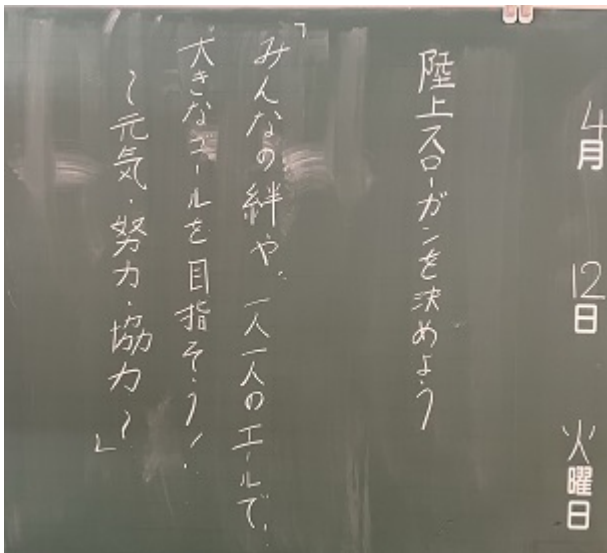 4月 12日 火曜日
陸上スローガンを決めよう
「みんなの絆や、一人一人のエールで、
大きなゴールを目指そう!
~元気・努力・協力~」